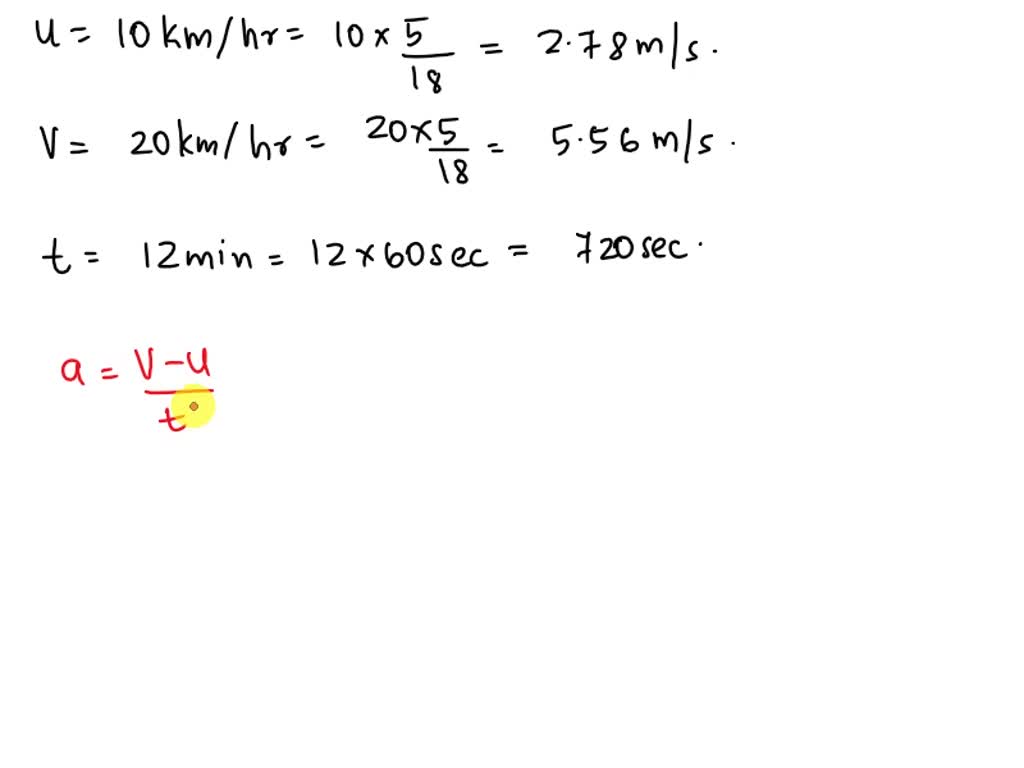 u = 10 km/hr = 10 × 5/18 = 2.78 m/s.
V = 20 km/hr = 20 × 5/18 = 5.56 m/s.
t = 12 min = 12 × 60 sec = 720 sec.
a = V - u/t